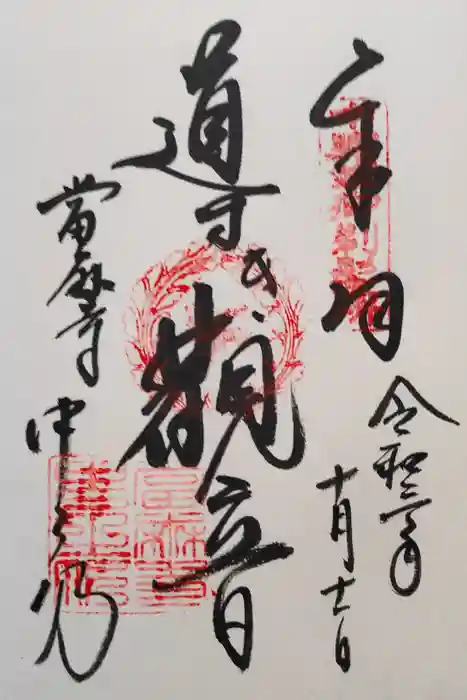 奉拝
令和三年
十月十一日
導き観音
當麻寺
中之坊